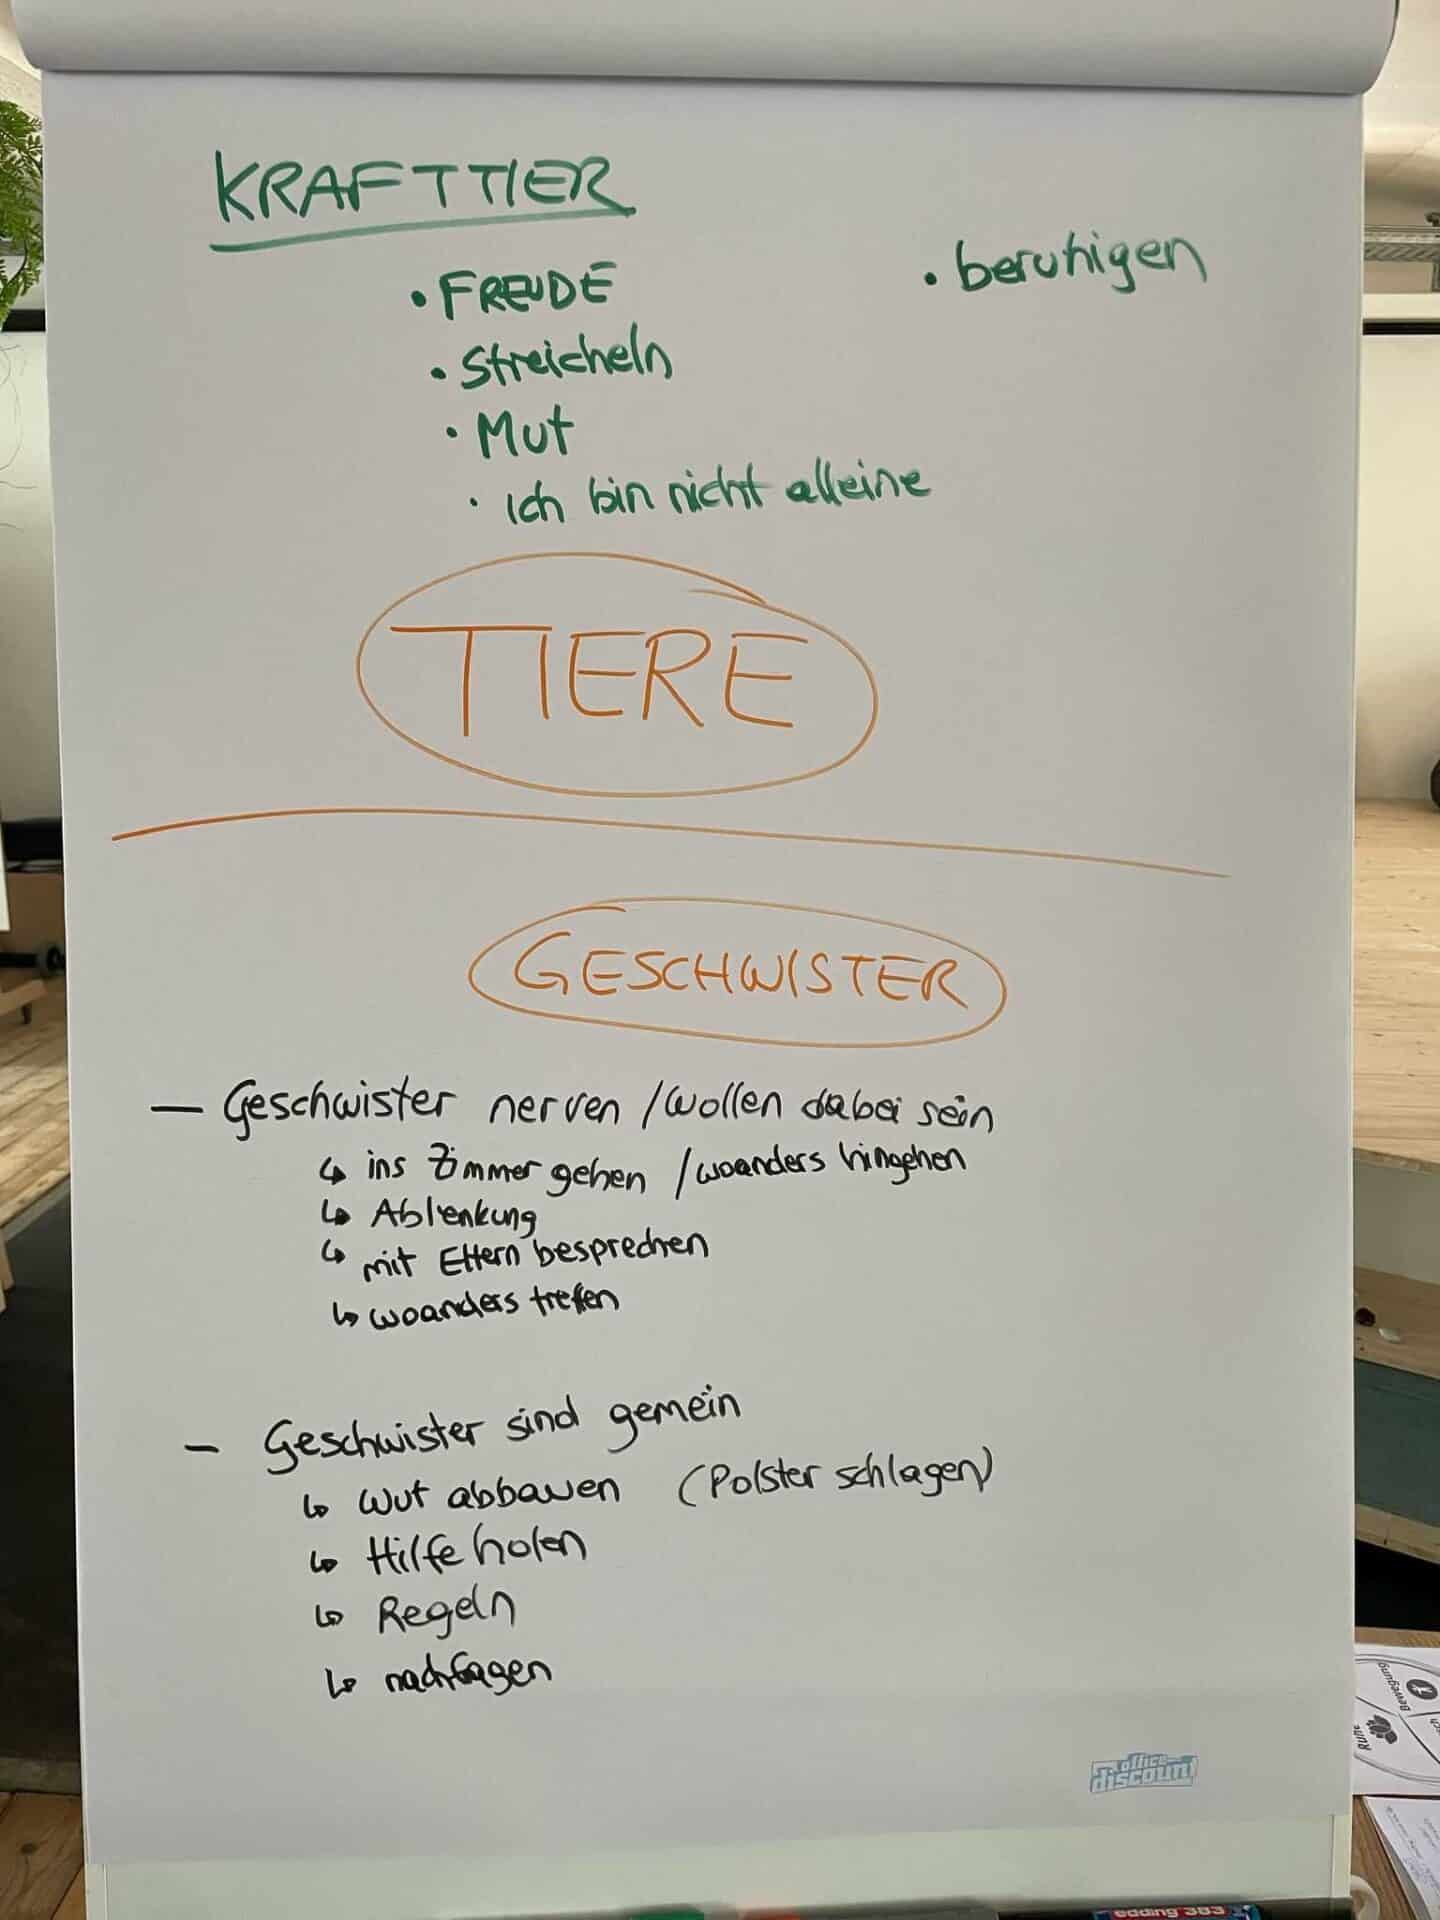 KRAFTTIER
• FREUDE
• beruhigen
• Streicheln
• Mut
• Ich bin nicht alleine
TIERE
GESCHWISTER
— Geschwister nerven / wollen dabei sein
↳ ins Zimmer gehen / woanders hingehen
↳ Ablenkung
↳ mit Eltern besprechen
↳ woanders treffen
– Geschwister sind gemein
↳ Wut abbauen (Polster schlagen)
↳ Hilfe holen
↳ Regeln
↳ nachfragen
office
discount
Bewegung
Ruhe
edding 383